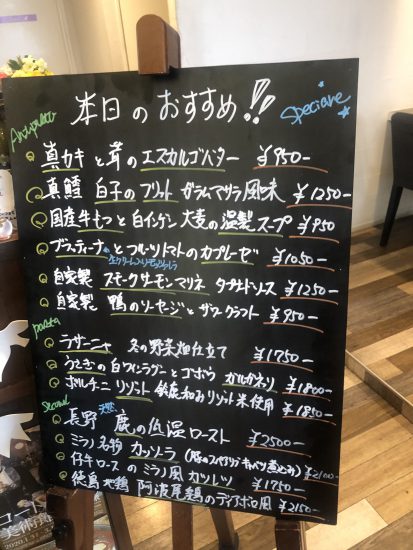 本日のおすすめ!!
Speciare
Antipasto
真カキと茸のエスカルゴバター ¥950-
真鱈 白子のフリット ガラムマサラ風味 ¥1250-
国産牛もつと白インゲン大麦の温製スープ ¥950
ブラティーナとフルーツトマトのカプレーゼ ¥1050-
自家製 スモークサーモンマリネ タプナードソース ¥1250-
自家製 鴨のソーセージとザワークラフト ¥950-
pasta
ラザーニャ 冬の野菜畑仕立て ¥1750-
うさぎの白ワインラグーとゴボウ ガルガネリ ¥1800-
ポルチーニ リゾット 鈴鹿和みリゾット米使用 ¥1850-
Second
長野 天然 鹿の低温ロースト ¥2500-
ミラノ名物 カッソーラ (豚のスペアリブキャベツ煮込み) ¥2100-
仔牛ロースのミラノ風カツレツ ¥1750-
徳島地鶏 阿波尾鶏のディアボロ風 ¥2150-
コート
美術館